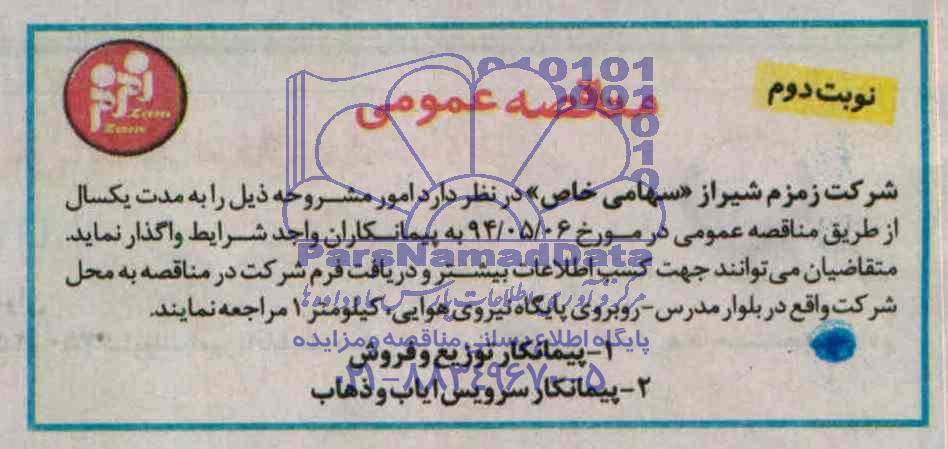 نوبت دوم
مناقصه عمومی
Zam
Zam
شرکت زمزم شیراز «سهامی خاص» در نظر دارد امور مشروحه ذیل را به مدت یکسال
از طریق مناقصه عمومی در مورخ ۹۴/۰۵/۰۶ به پیمانکاران واجد شرایط واگذار نماید.
متقاضیان می‌توانند جهت کسب اطلاعات بیشتر و دریافت فرم شرکت در مناقصه به محل
شرکت واقع در بلوار مدرس-روبروی پایگاه نیروی هوایی، کیلومتر ۱ مراجعه نمایند.
۱-پیمانکار توزیع و فروش
۲-پیمانکار سرویس ایاب و ذهاب
ParsNamadData
پایگاه اطلاع رسانی مناقصه و مزایده
۰۲۱-۸۸۳۴۹۶۷۰-۵